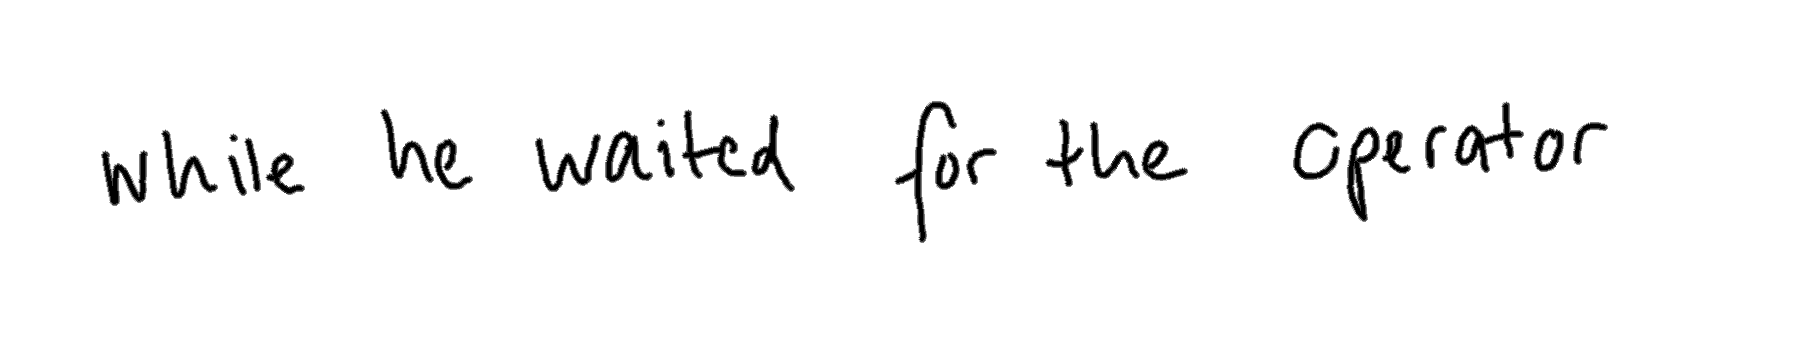 while he waited for the operator